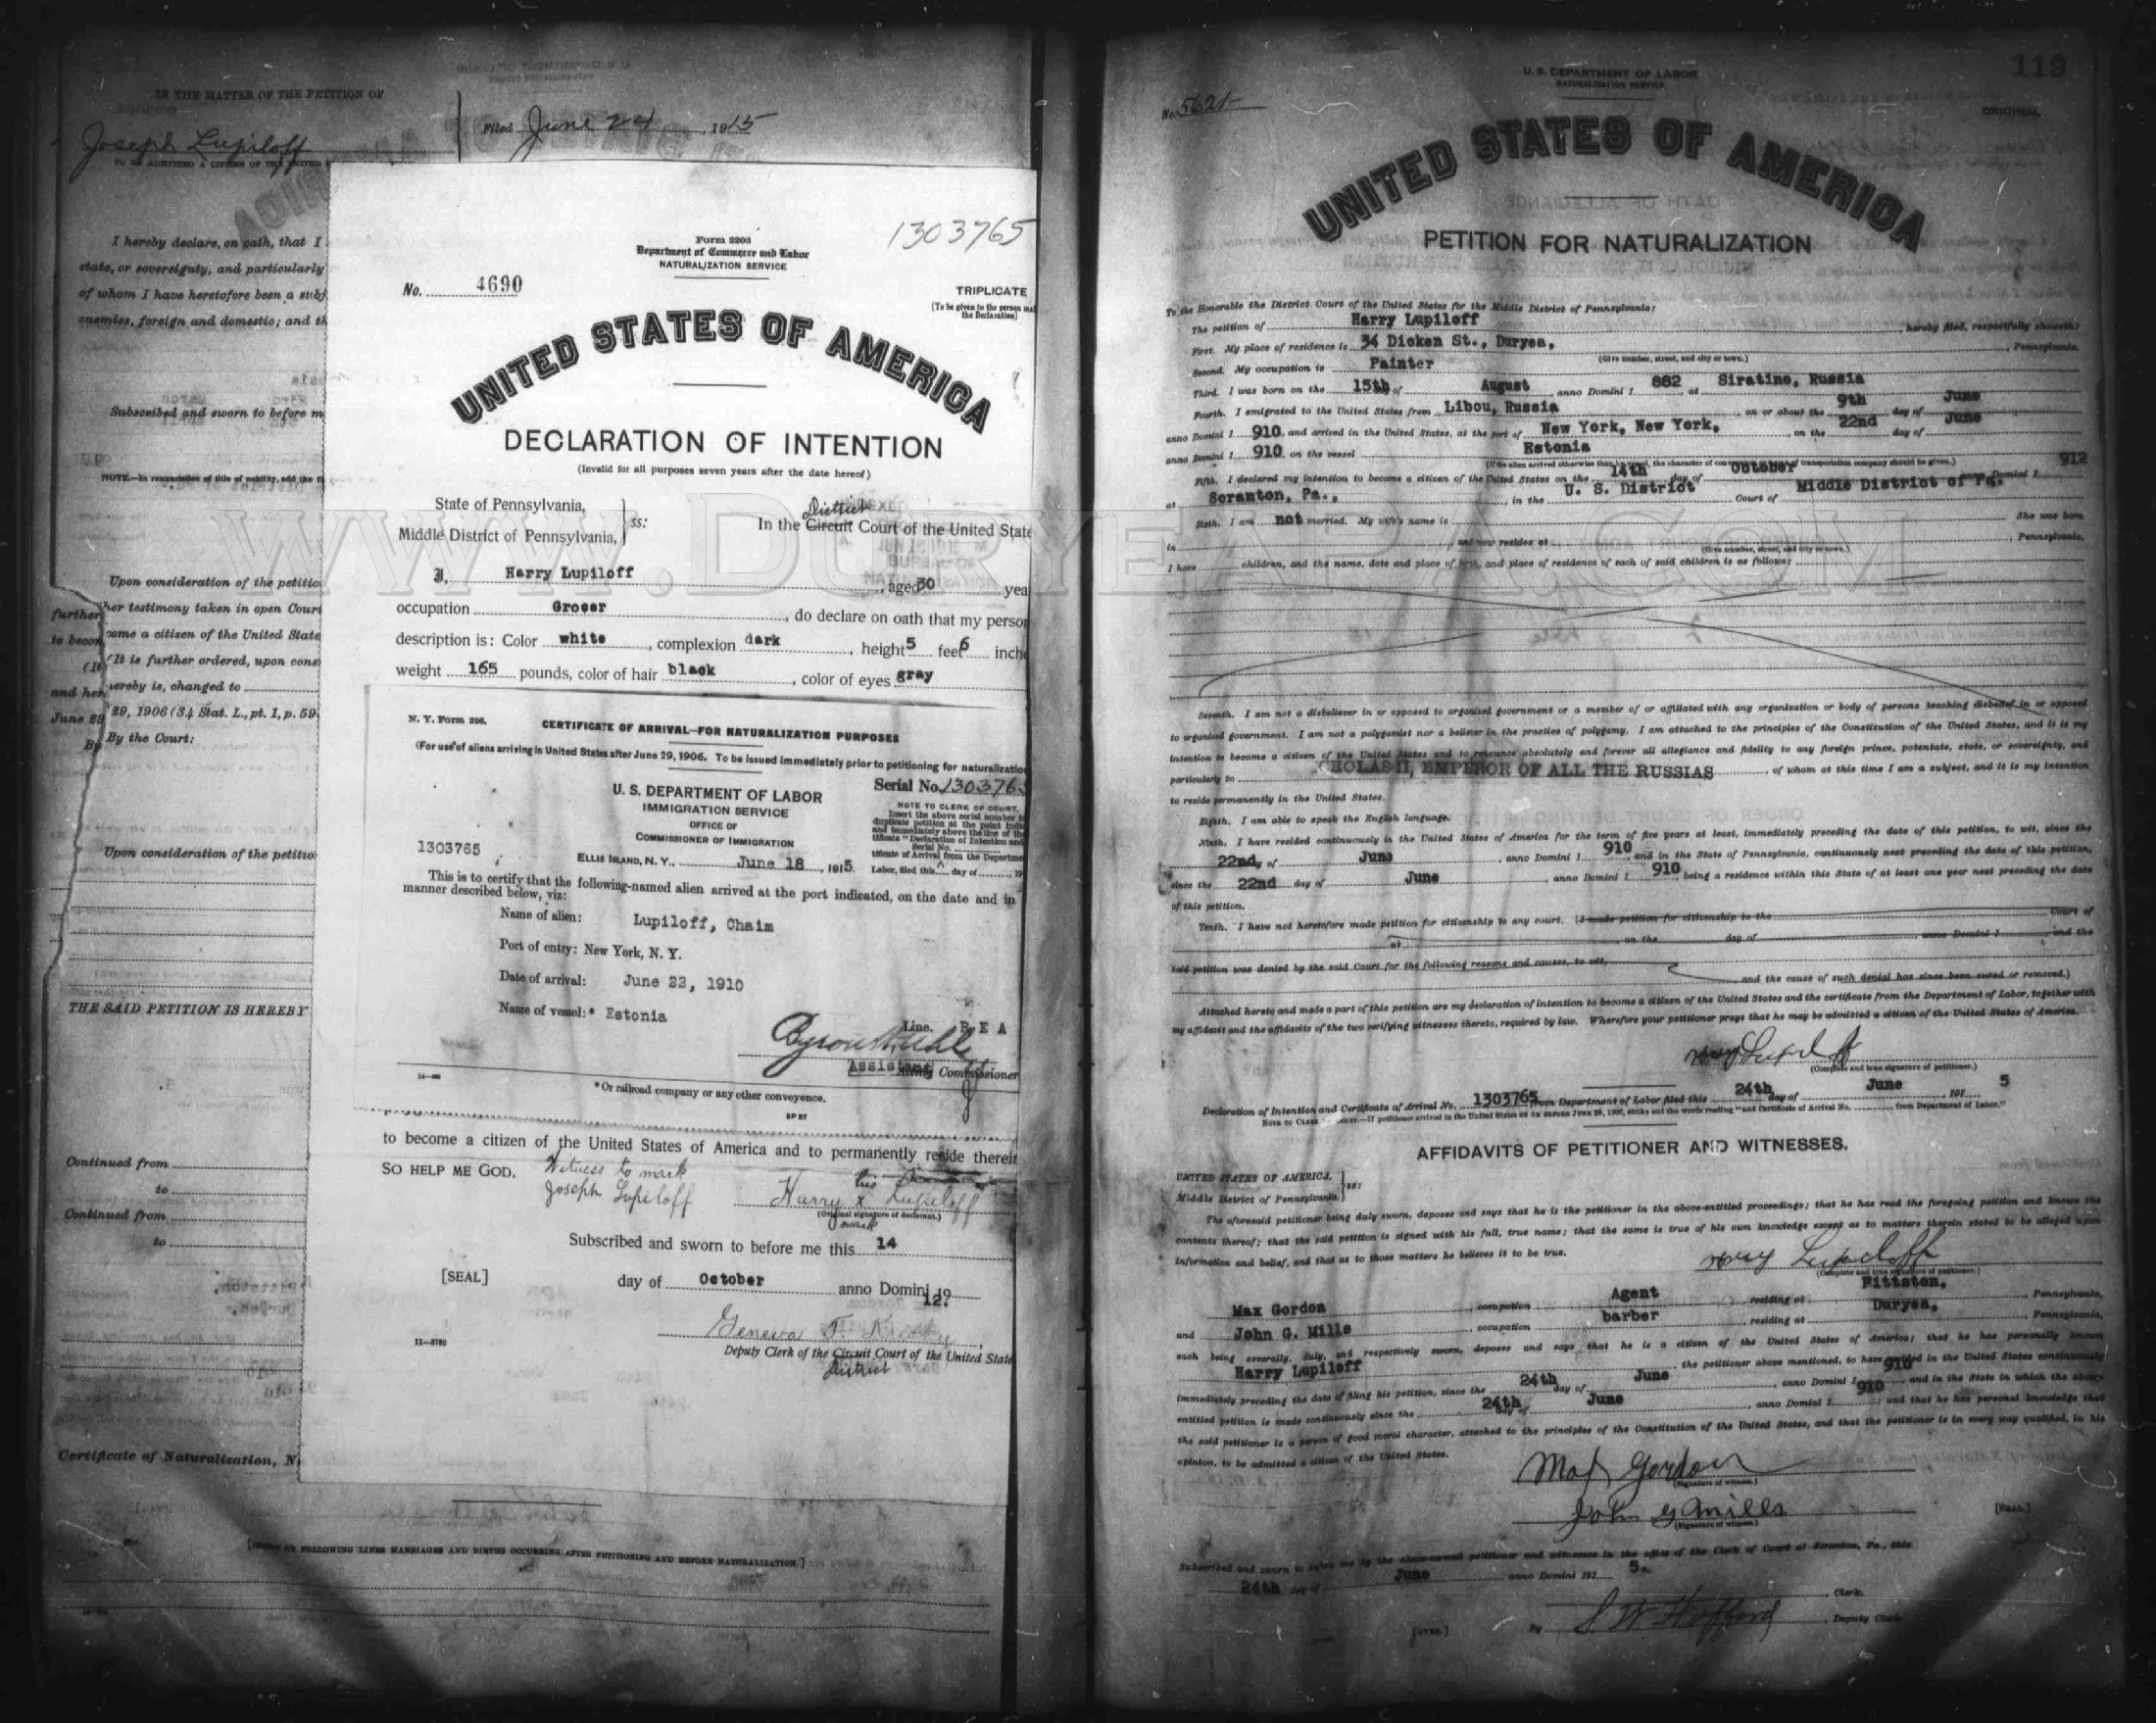 IN THE MATTER OF THE PETITION OF
Joseph Lupiloff
TO BE ADMITTED A CITIZEN OF THE UNITED
Filed June 24, 1915
I hereby declare, on oath, that I
state, or sovereignty, and particularly
of whom I have heretofore been a subj
enemies, foreign and domestic; and th
Subscribed and sworn to before m
NOTE.—In renunciation of title of nobility, add the f
Upon consideration of the petitio
further her testimony taken in open Court
to becom ome a citizen of the United State
(It (It is further ordered, upon cons
and her ereby is, changed to
June 29 29, 1906 (34 Stat. L., pt. 1, p. 59
By By the Court:
Upon consideration of the petitio
THE SAID PETITION IS HEREBY
Continued from
to
Continued from
to
Certificate of Naturalization, N
FOLLOWING LINES MARRIAGES AND BIRTHS OCCURRING AFTER PETITIONING AND BEFORE NATURALIZATION.]
1303765
Form 2203
Department of Commerce and Labor
NATURALIZATION SERVICE
No. 4690
TRIPLICATE
(To be given to the person ma
the Declaration)
UNITED STATES OF AMERICA
DECLARATION OF INTENTION
(Invalid for all purposes seven years after the date hereof)
State of Pennsylvania,
Middle District of Pennsylvania, } ss:
District
In the Circuit Court of the United State
WWW.DURYEAPA.COM
I, Harry Lupiloff, aged 30 yea
occupation Grocer, do declare on oath that my person
description is: Color white, complexion dark, height 5 feet 6 inche
weight 165 pounds, color of hair black, color of eyes gray
N. Y. Form 226.
CERTIFICATE OF ARRIVAL—FOR NATURALIZATION PURPOSES
(For use of aliens arriving in United States after June 29, 1906. To be issued immediately prior to petitioning for naturalization
U. S. DEPARTMENT OF LABOR
IMMIGRATION SERVICE
OFFICE OF
COMMISSIONER OF IMMIGRATION
Serial No. 1303765
NOTE TO CLERK OF COURT.
Insert the above serial number in
duplicate petition at the point indi
and immediately above the line of the
tificate "Declaration of Intention and
Serial No.
tificate of Arrival from the Departme
Labor, filed this day of , 19
1303765
ELLIS ISLAND, N. Y., June 18, 1915
This is to certify that the following-named alien arrived at the port indicated, on the date and in
manner described below, viz:
Name of alien: Lupiloff, Chaim
Port of entry: New York, N. Y.
Date of arrival: June 22, 1910
Name of vessel:* Estonia
Line. R E A
Assistant Commissioner
*Or railroad company or any other conveyance.
to become a citizen of the United States of America and to permanently reside therein
SO HELP ME GOD.
Witness to mark
Joseph Lupiloff
his
Harry x Lupiloff
(Original signature of declarant.)
mark
Subscribed and sworn to before me this 14
[SEAL]
day of October anno Domini 19 12.
11—3782
Geneva F.
Deputy Clerk of the Circuit Court of the United State
District
119
U. S. DEPARTMENT OF LABOR
NATURALIZATION SERVICE
No. 5621
ORIGINAL
UNITED STATES OF AMERICA
PETITION FOR NATURALIZATION
To the Honorable the District Court of the United States for the Middle District of Pennsylvania:
The petition of Harry Lupiloff, hereby filed, respectfully showeth:
First. My place of residence is 34 Dicken St., Duryea, Pennsylvania.
(Give number, street, and city or town.)
Second. My occupation is Painter
Third. I was born on the 15th of August anno Domini 1 882 at Siratino, Russia
Fourth. I emigrated to the United States from Libou, Russia, on or about the 9th day of June
anno Domini 1 910, and arrived in the United States, at the port of New York, New York, on the 22nd day of June
anno Domini 1 910, on the vessel Estonia
(If the alien arrived otherwise than by vessel, the character of conveyance or name of transportation company should be given.)
Fifth. I declared my intention to become a citizen of the United States on the 14th day of October anno Domini 1 912
at Scranton, Pa., in the U. S. District Court of Middle District of Pa.
Sixth. I am not married. My wife's name is She was born
in , and now resides at , Pennsylvania.
(Give number, street, and city or town.)
I have children, and the name, date and place of birth, and place of residence of each of said children is as follows:
Seventh. I am not a disbeliever in or opposed to organized government or a member of or affiliated with any organization or body of persons teaching disbelief in or opposed
to organized government. I am not a polygamist nor a believer in the practice of polygamy. I am attached to the principles of the Constitution of the United States, and it is my
intention to become a citizen of the United States and to renounce absolutely and forever all allegiance and fidelity to any foreign prince, potentate, state, or sovereignty, and
particularly to CHOLAS II, EMPEROR OF ALL THE RUSSIAS, of whom at this time I am a subject, and it is my intention
to reside permanently in the United States.
Eighth. I am able to speak the English language.
Ninth. I have resided continuously in the United States of America for the term of five years at least, immediately preceding the date of this petition, to wit, since the
22nd, of June, anno Domini 1 910, and in the State of Pennsylvania, continuously next preceding the date of this petition,
since the 22nd day of June, anno Domini 1 910, being a residence within this State of at least one year next preceding the date
of this petition.
Tenth. I have not heretofore made petition for citizenship to any court. (I made petition for citizenship to the Court of
at , on the day of , anno Domini 1 , and the
said petition was denied by the said Court for the following reasons and causes, to wit, and the cause of such denial has since been cured or removed.)
Attached hereto and made a part of this petition are my declaration of intention to become a citizen of the United States and the certificate from the Department of Labor, together with
my affidavit and the affidavits of the two verifying witnesses thereto, required by law. Wherefore your petitioner prays that he may be admitted a citizen of the United States of America.
(Complete and true signature of petitioner.)
Declaration of Intention and Certificate of Arrival No. 1303765 from Department of Labor filed this 24th day of June 191 5
AFFIDAVITS OF PETITIONER AND WITNESSES.
UNITED STATES OF AMERICA,
Middle District of Pennsylvania, } ss:
The aforesaid petitioner being duly sworn, deposes and says that he is the petitioner in the above-entitled proceedings; that he has read the foregoing petition and knows the
contents thereof; that the said petition is signed with his full, true name; that the same is true of his own knowledge except as to matters therein stated to be alleged upon
information and belief, and that as to those matters he believes it to be true.
Lupiloff
(Complete and true signature of petitioner.)
Max Gordon, occupation Agent, residing at Pittston, Pennsylvania,
and John G. Mills, occupation barber, residing at Duryea, Pennsylvania,
each being severally, duly, and respectively sworn, deposes and says that he is a citizen of the United States of America; that he has personally known
Harry Lupiloff, the petitioner above mentioned, to have resided in the United States continuously
immediately preceding the date of filing his petition, since the 24th day of June, anno Domini 1 910, and in the State in which the above-
entitled petition is made continuously since the 24th day of June, anno Domini 1 910; and that he has personal knowledge that
the said petitioner is a person of good moral character, attached to the principles of the Constitution of the United States, and that the petitioner is in every way qualified, in his
opinion, to be admitted a citizen of the United States.
Max Gordon
(Signature of witness.)
John G Mills
(Signature of witness.)
[SEAL.]
Subscribed and sworn to before me by the above-named petitioner and witnesses in the office of the Clerk of Court at Scranton, Pa., this
24th day of June anno Domini 191 5.
, Clerk.
By S W Hofford, Deputy Clerk.
[OVER.]